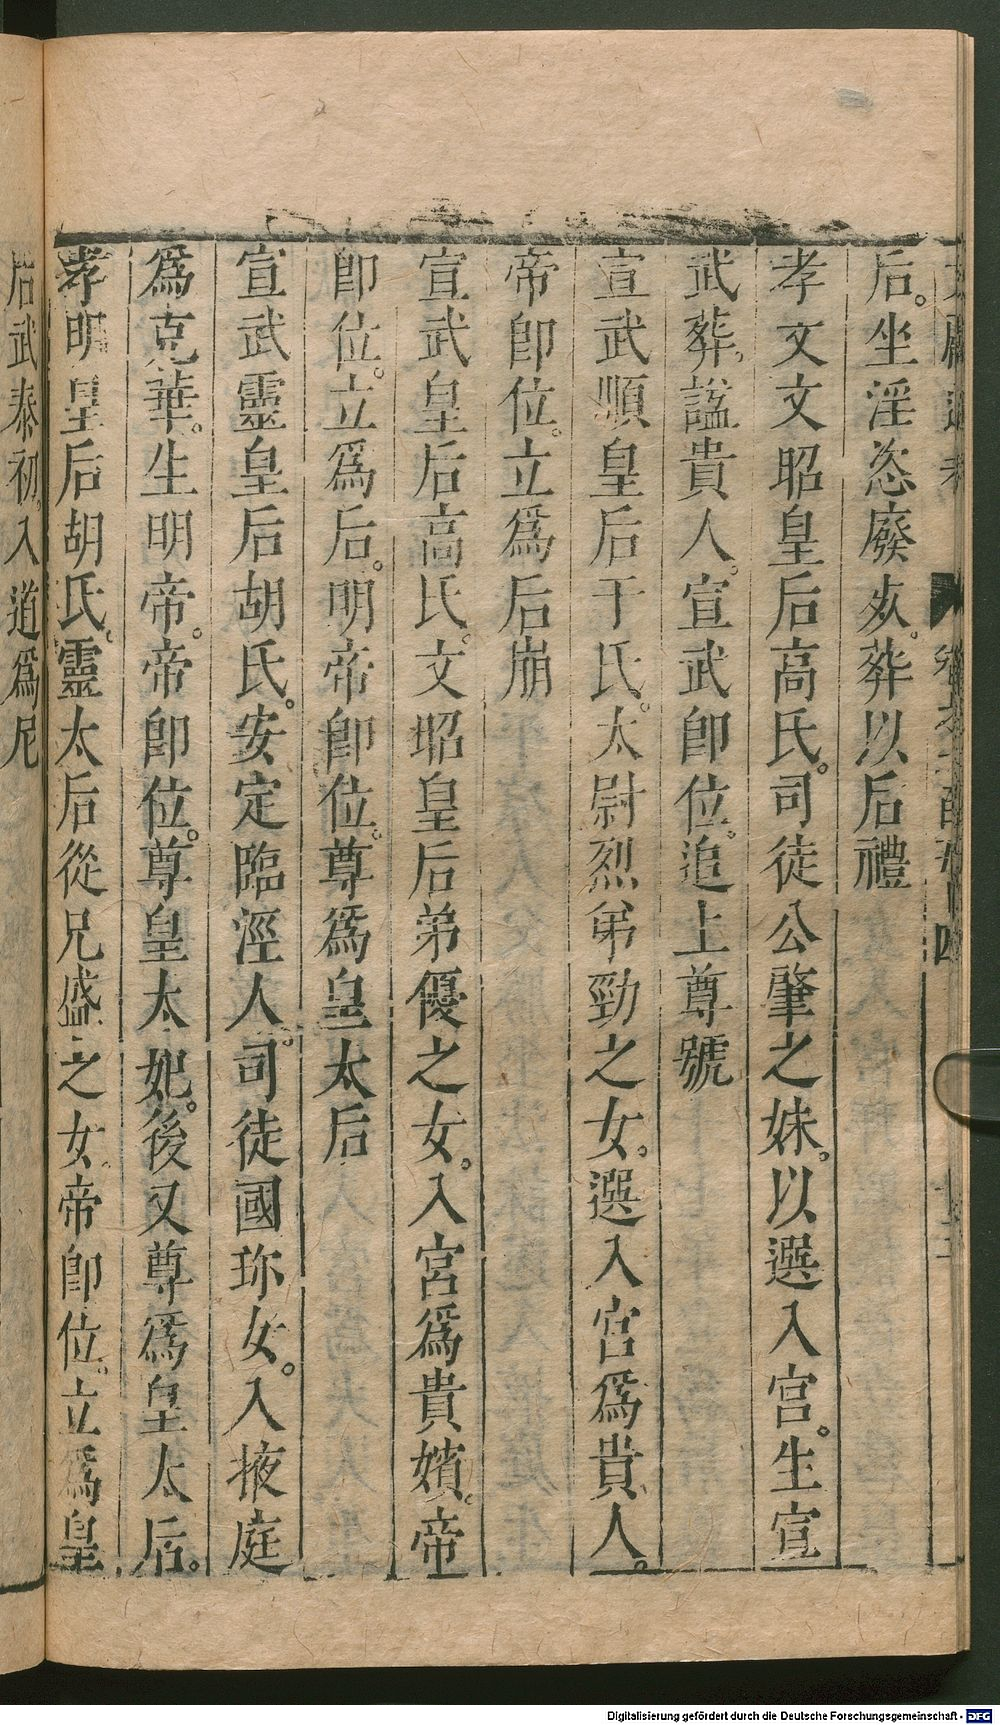 后。坐淫恣廢死。葬以后禮
孝文文昭皇后高氏。司徒公肇之妹。以選入宫。生宣
武。葬。諡貴人。宣武卽位。追上尊號
宣武順皇后于氏。太尉烈弟勁之女。選入宫爲貴人。
帝卽位。立爲后崩
宣武皇后高氏。文昭皇后弟偃之女。入宮爲貴嬪。帝
卽位。立爲后。明帝卽位。尊爲皇太后
宣武靈皇后胡氏。安定臨涇人。司徒國珍女。入掖庭
爲充華。生明帝。帝卽位。尊皇太妃。後又尊爲皇太后。
孝明皇后胡氏。靈太后從兄盛之女帝卽位。立爲皇
后武泰初。入道爲尼
Digitalisierung gefördert durch die Deutsche Forschungsgemeinschaft - DFG